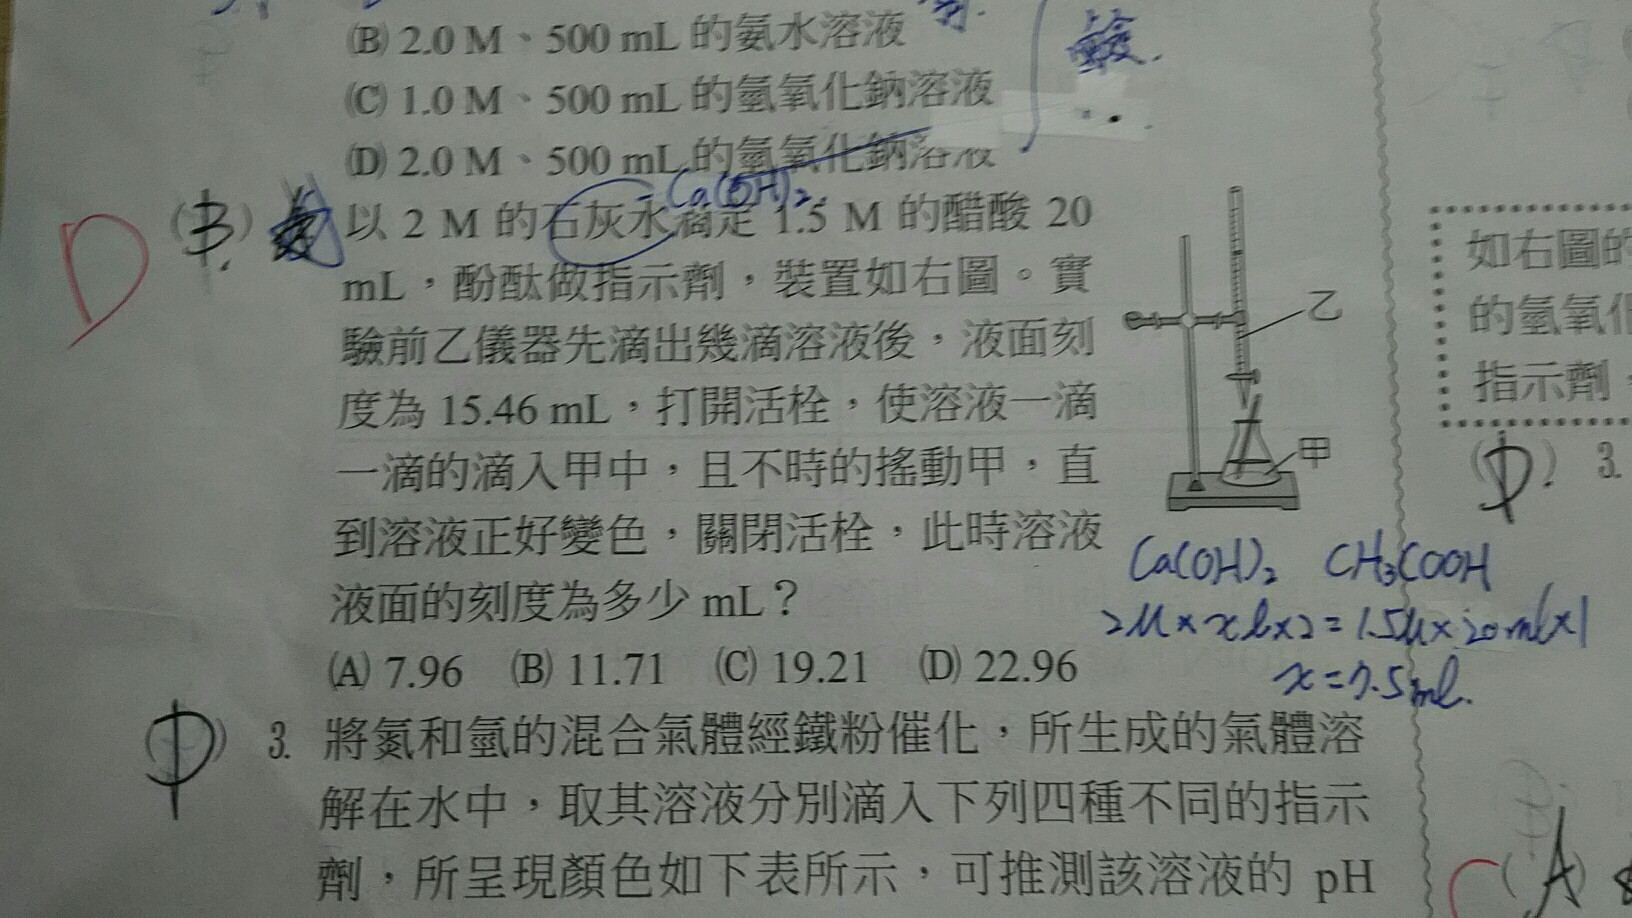 (B) 2.0 M、500 mL 的氨水溶液
鹼.
(C) 1.0 M、500 mL 的氫氧化鈉溶液
(D) 2.0 M、500 mL 的氫氧化鈉溶液
Ca(OH)₂
D
(B.) 以 2 M 的石灰水滴定 1.5 M 的醋酸 20
mL，酚酞做指示劑，裝置如右圖。實
驗前乙儀器先滴出幾滴溶液後，液面刻
度為 15.46 mL，打開活栓，使溶液一滴
一滴的滴入甲中，且不時的搖動甲，直
到溶液正好變色，關閉活栓，此時溶液
液面的刻度為多少 mL？
(A) 7.96 (B) 11.71 (C) 19.21 (D) 22.96
乙
甲
Ca(OH)₂ CH₃COOH
2M×xL×2=1.5M×20ml×1
x=7.5ml.
(D) 3. 將氮和氫的混合氣體經鐵粉催化，所生成的氣體溶
解在水中，取其溶液分別滴入下列四種不同的指示
劑，所呈現顏色如下表所示，可推測該溶液的 pH
如右圖的
的氫氧化
指示劑，
(D) 3.
(A)